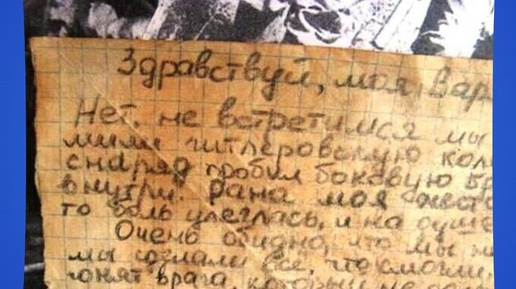 Здравствуй, моя Вар
Нет, не встретимся мы
мили гитлеровскую кол
снаряд пробил боковую бр
внутри. Рана моя жесто
то боль улеглась, и на душе
Очень обидно, что мы н
мы сделали всё, что смогли,
гонят врага, который не